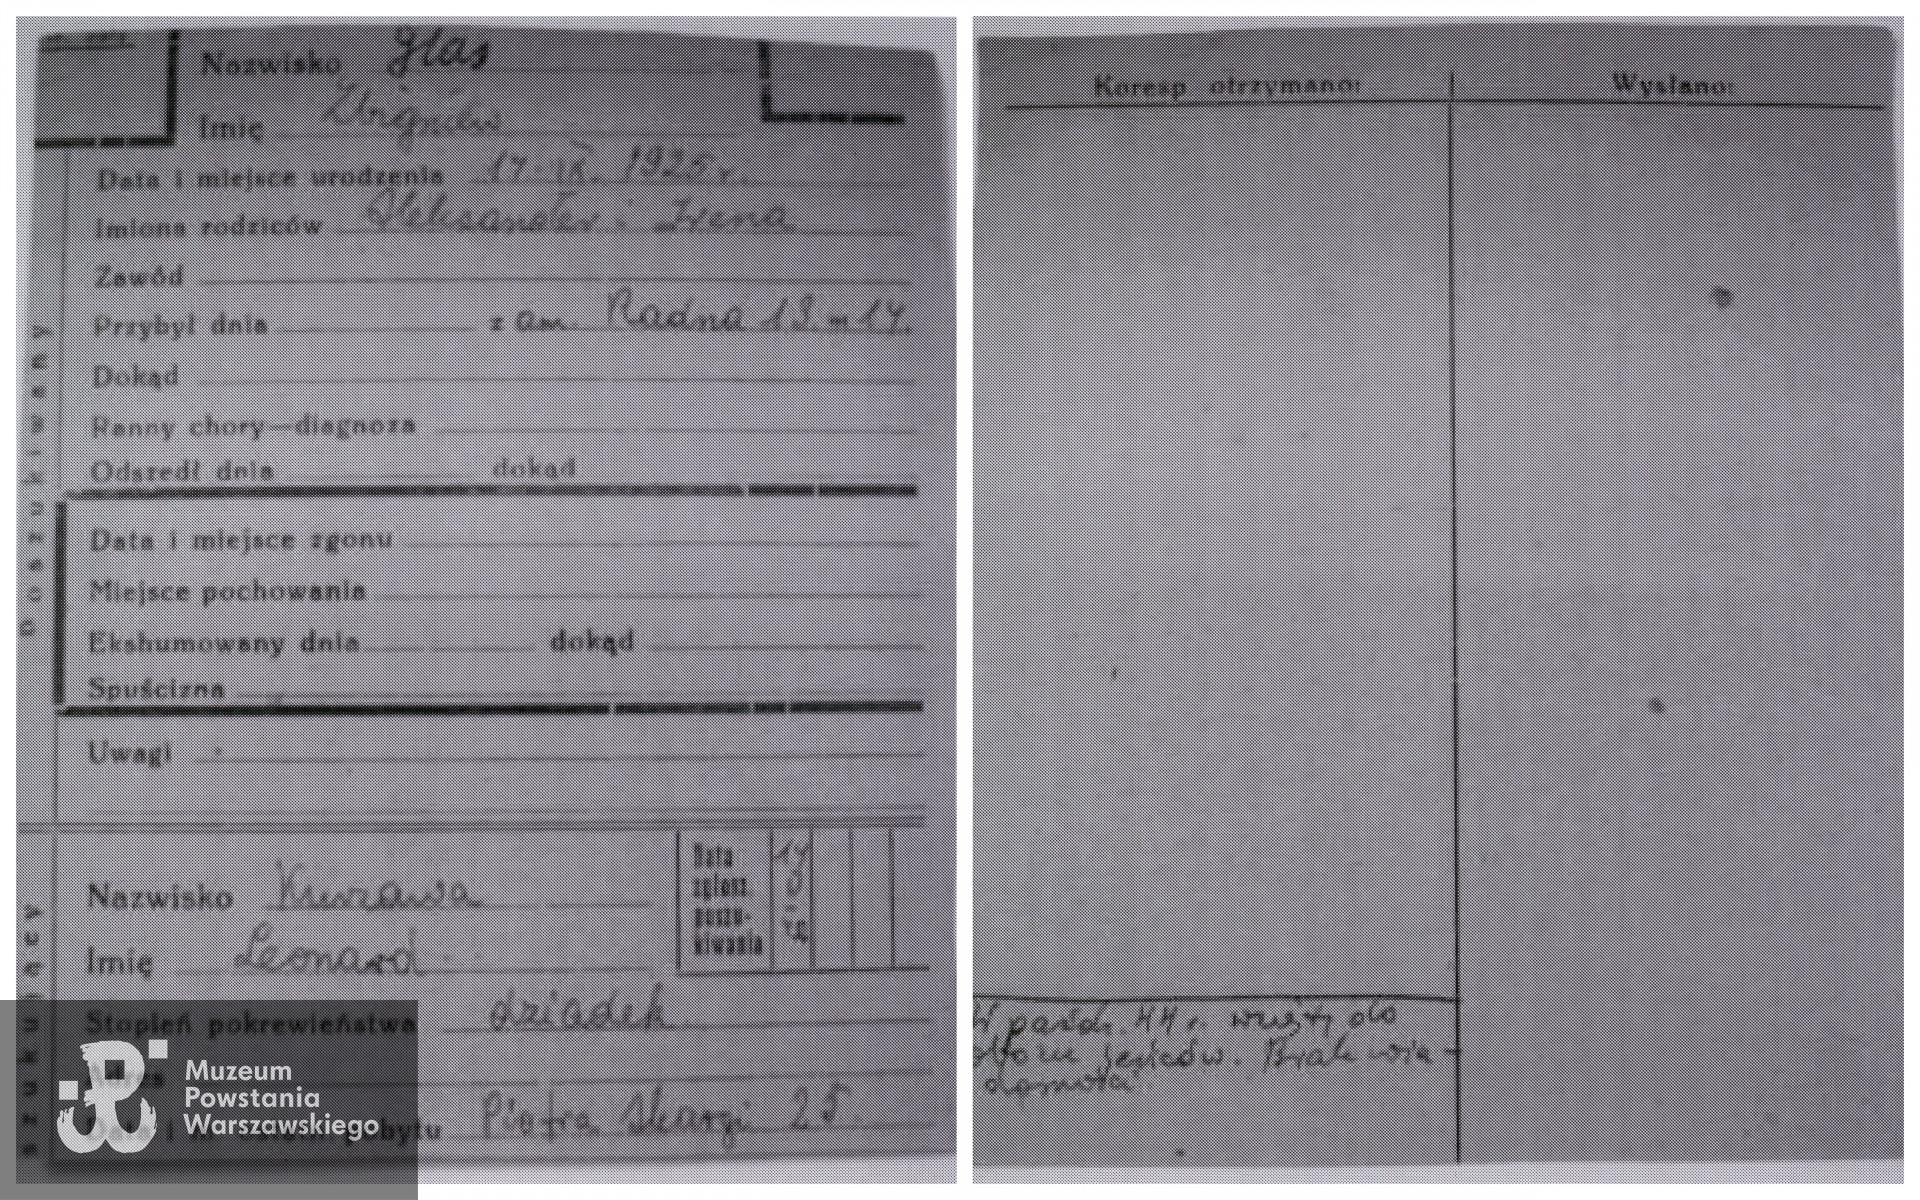 Nazwisko Glas
Imię Zbigniew
Data i miejsce urodzenia 17. IX. 1925 r.
Imiona rodziców Aleksander i Irena
Zawód
Przybył dnia z am. Radna 13 m 14.
Dokąd
Ranny chory—diagnoza
Odszedł dnia dokąd
Data i miejsce zgonu
Miejsce pochowania
Ekshumowany dnia dokąd
Spuścizna
Uwagi
Poszukiwany
Nazwisko Kurzawa
Imię Leonard
Data zgłosz. poszu-kiwania
Stopień pokrewieństwa dziadek
Adres
pobytu Piotra Skargi 25.
Muzeum
Powstania
Warszawskiego
Koresp otrzymano: Wysłano:
W paźdz. 44 r. wzięty do
obozu jeńców. Brak wia-
domości.